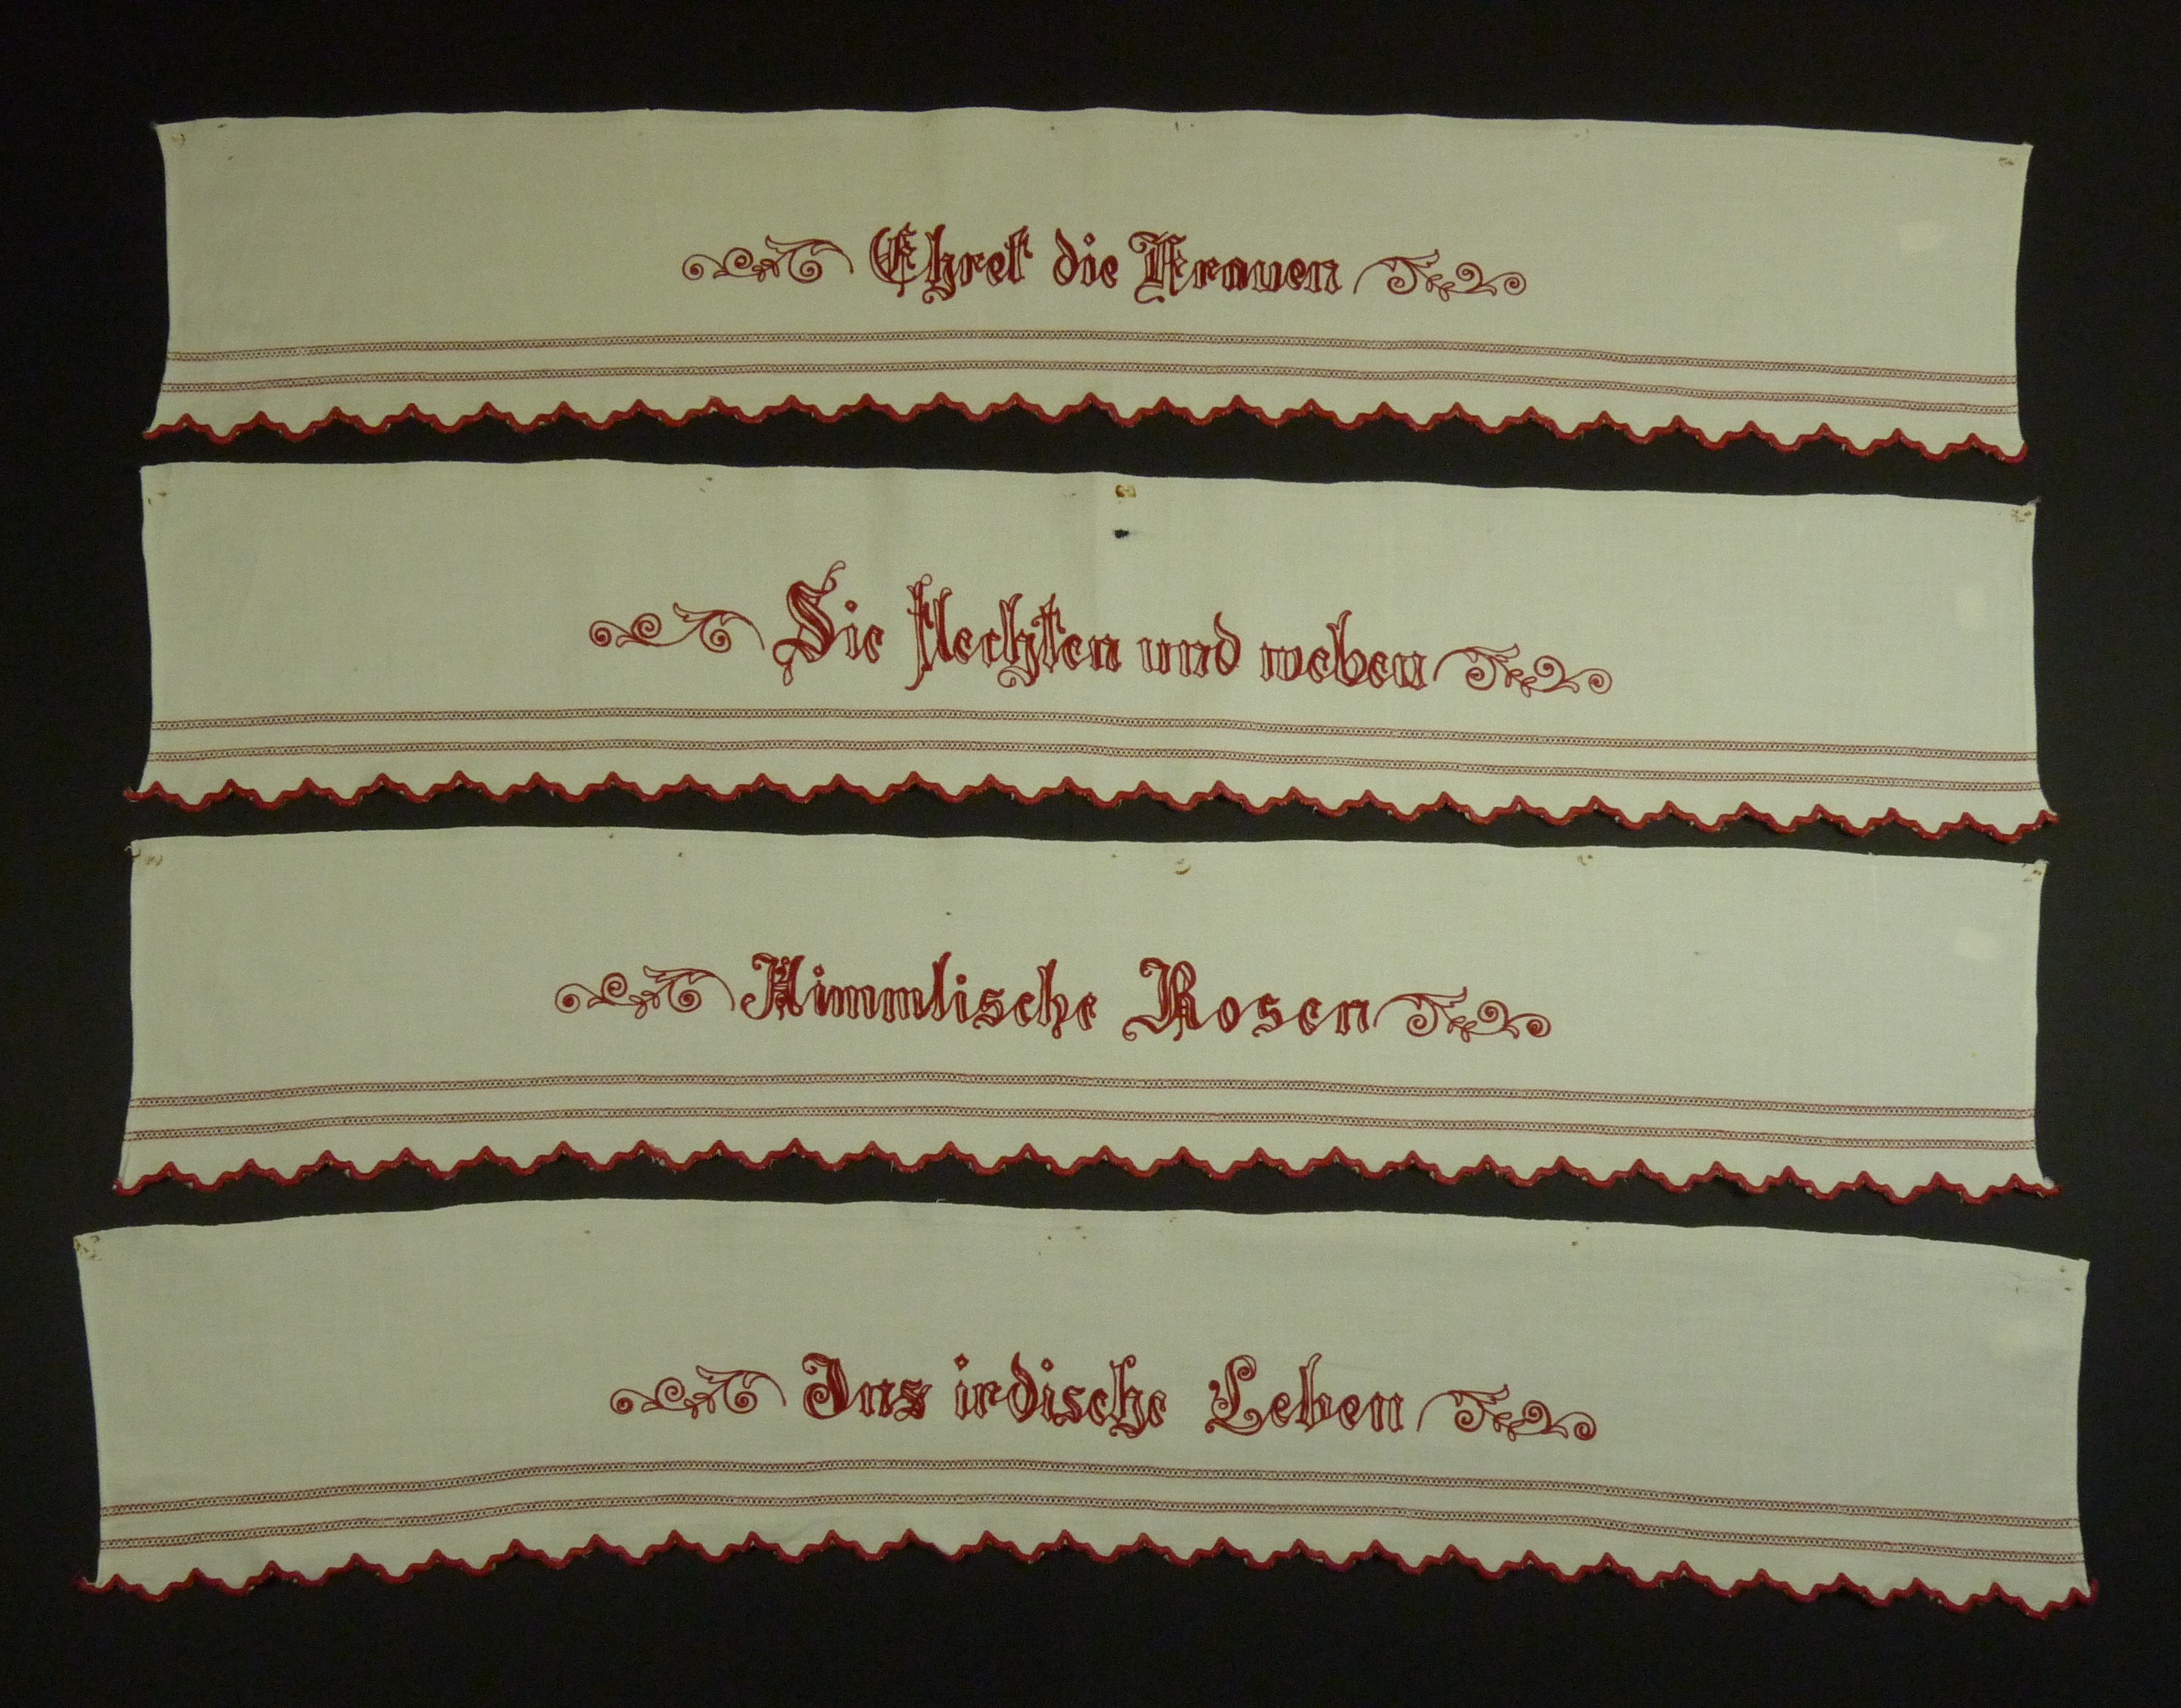 Ehret die Frauen
Sie flechten und weben
Himmlische Rosen
Ins irdische Leben